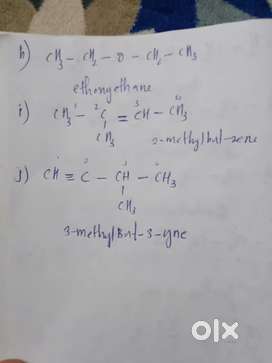 h) CH3 - CH2 - O - CH2 - CH3
ethoxyethane
i) CH3 - C = CH - CH3
1 2 3
CH3
2-methylbut-2ene
j) CH ≡ C - CH - CH3
CH3
3-methylBut-3-yne
olx